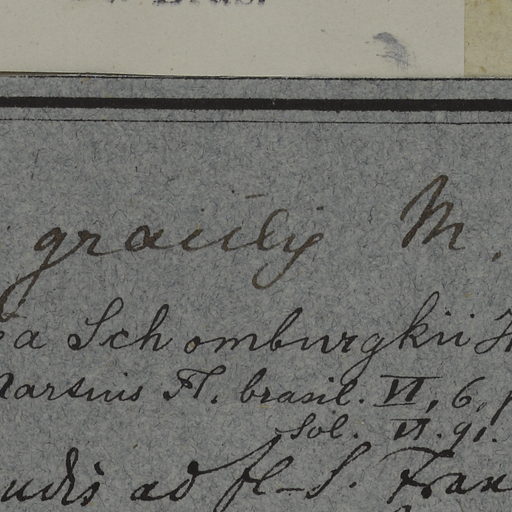 gracilis M.
a Schomburgkii
Martius Fl. brasil. VI, 6,
Sol. VI. 91.
ad fl. S. Fran